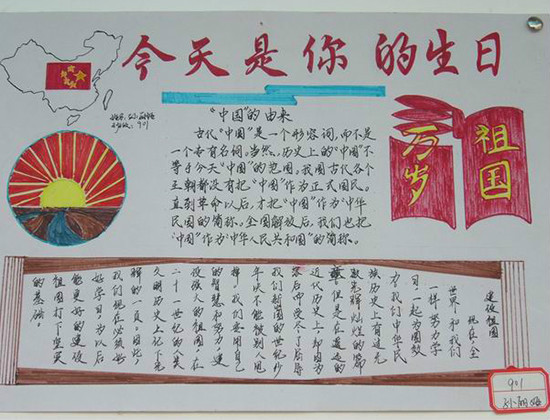 今天是你的生日
祖国
万岁
901
“中国”的由来
古代“中国”是一个形容词,而不是
一个专有名词。当然,历史上的“中国”不
等于今天“中国”的范围。我国古代各个
王朝都没有把“中国”作为正式国民。
直到革命以后,才把“中国”作为“中华
民国的简称。全国解放后,我们也把
“中国”作为“中华人民共和国”的简称。
建设祖国
现在,全
世界和我们
一样努力学
习,一起为国效
力!我们中华民
族历史上有过光
辉灿烂的篇
章,但是在遥远的
近代历史上,却因为
后中受尽了屈辱
我们新国的世纪少
年决不能被别人甩
掉!我们要用自己
的智慧和努力,建
设强大的祖国,在
二十一世纪的人类
文明历史上记下光
辉的一页!因此,
我们现在必须好
好学习,为以后
能更好的建设
祖国打下坚实
的基础。
901